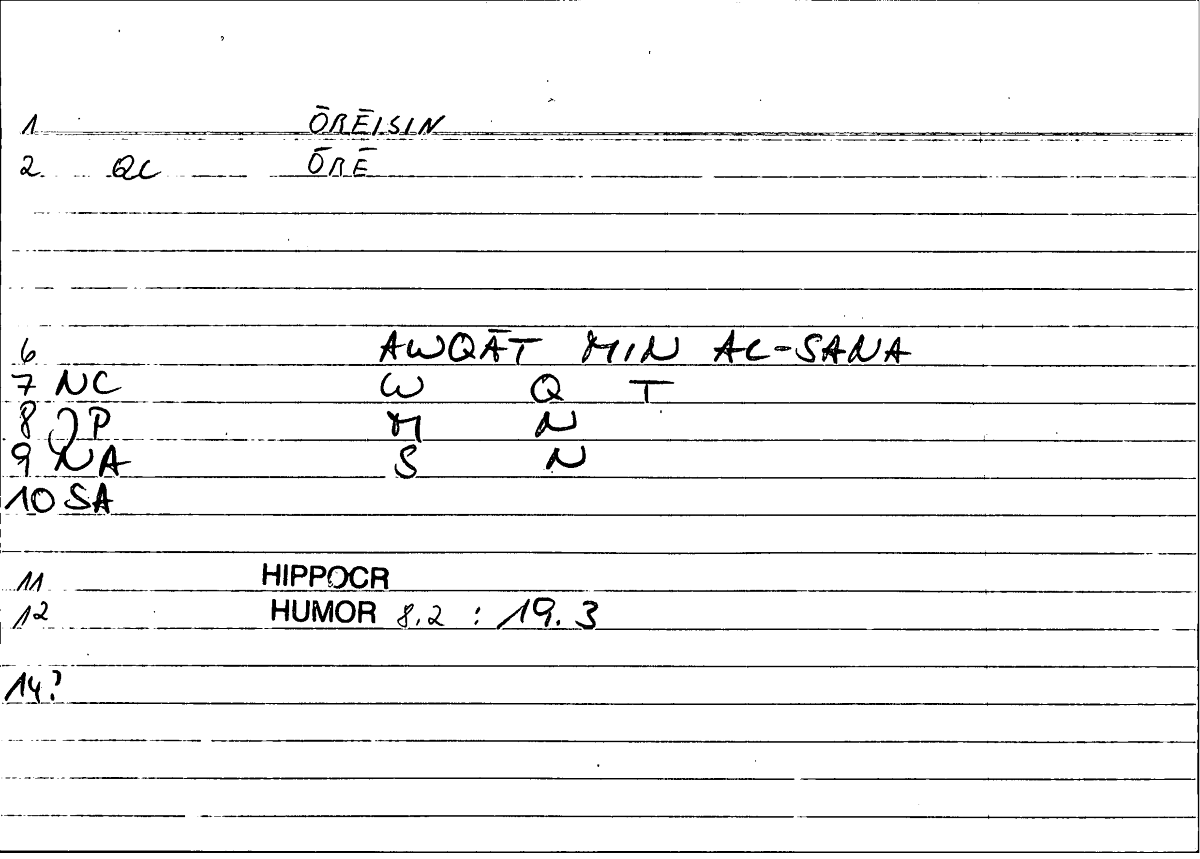 1 ŌRĒISIN
2 QC ŌRĒ
6 AWQĀT MIN AL-SANA
7 NC W Q T
8 JP M N
9 NA S N
10 SA
11 HIPPOCR
12 HUMOR 8.2 : 19.3
14?